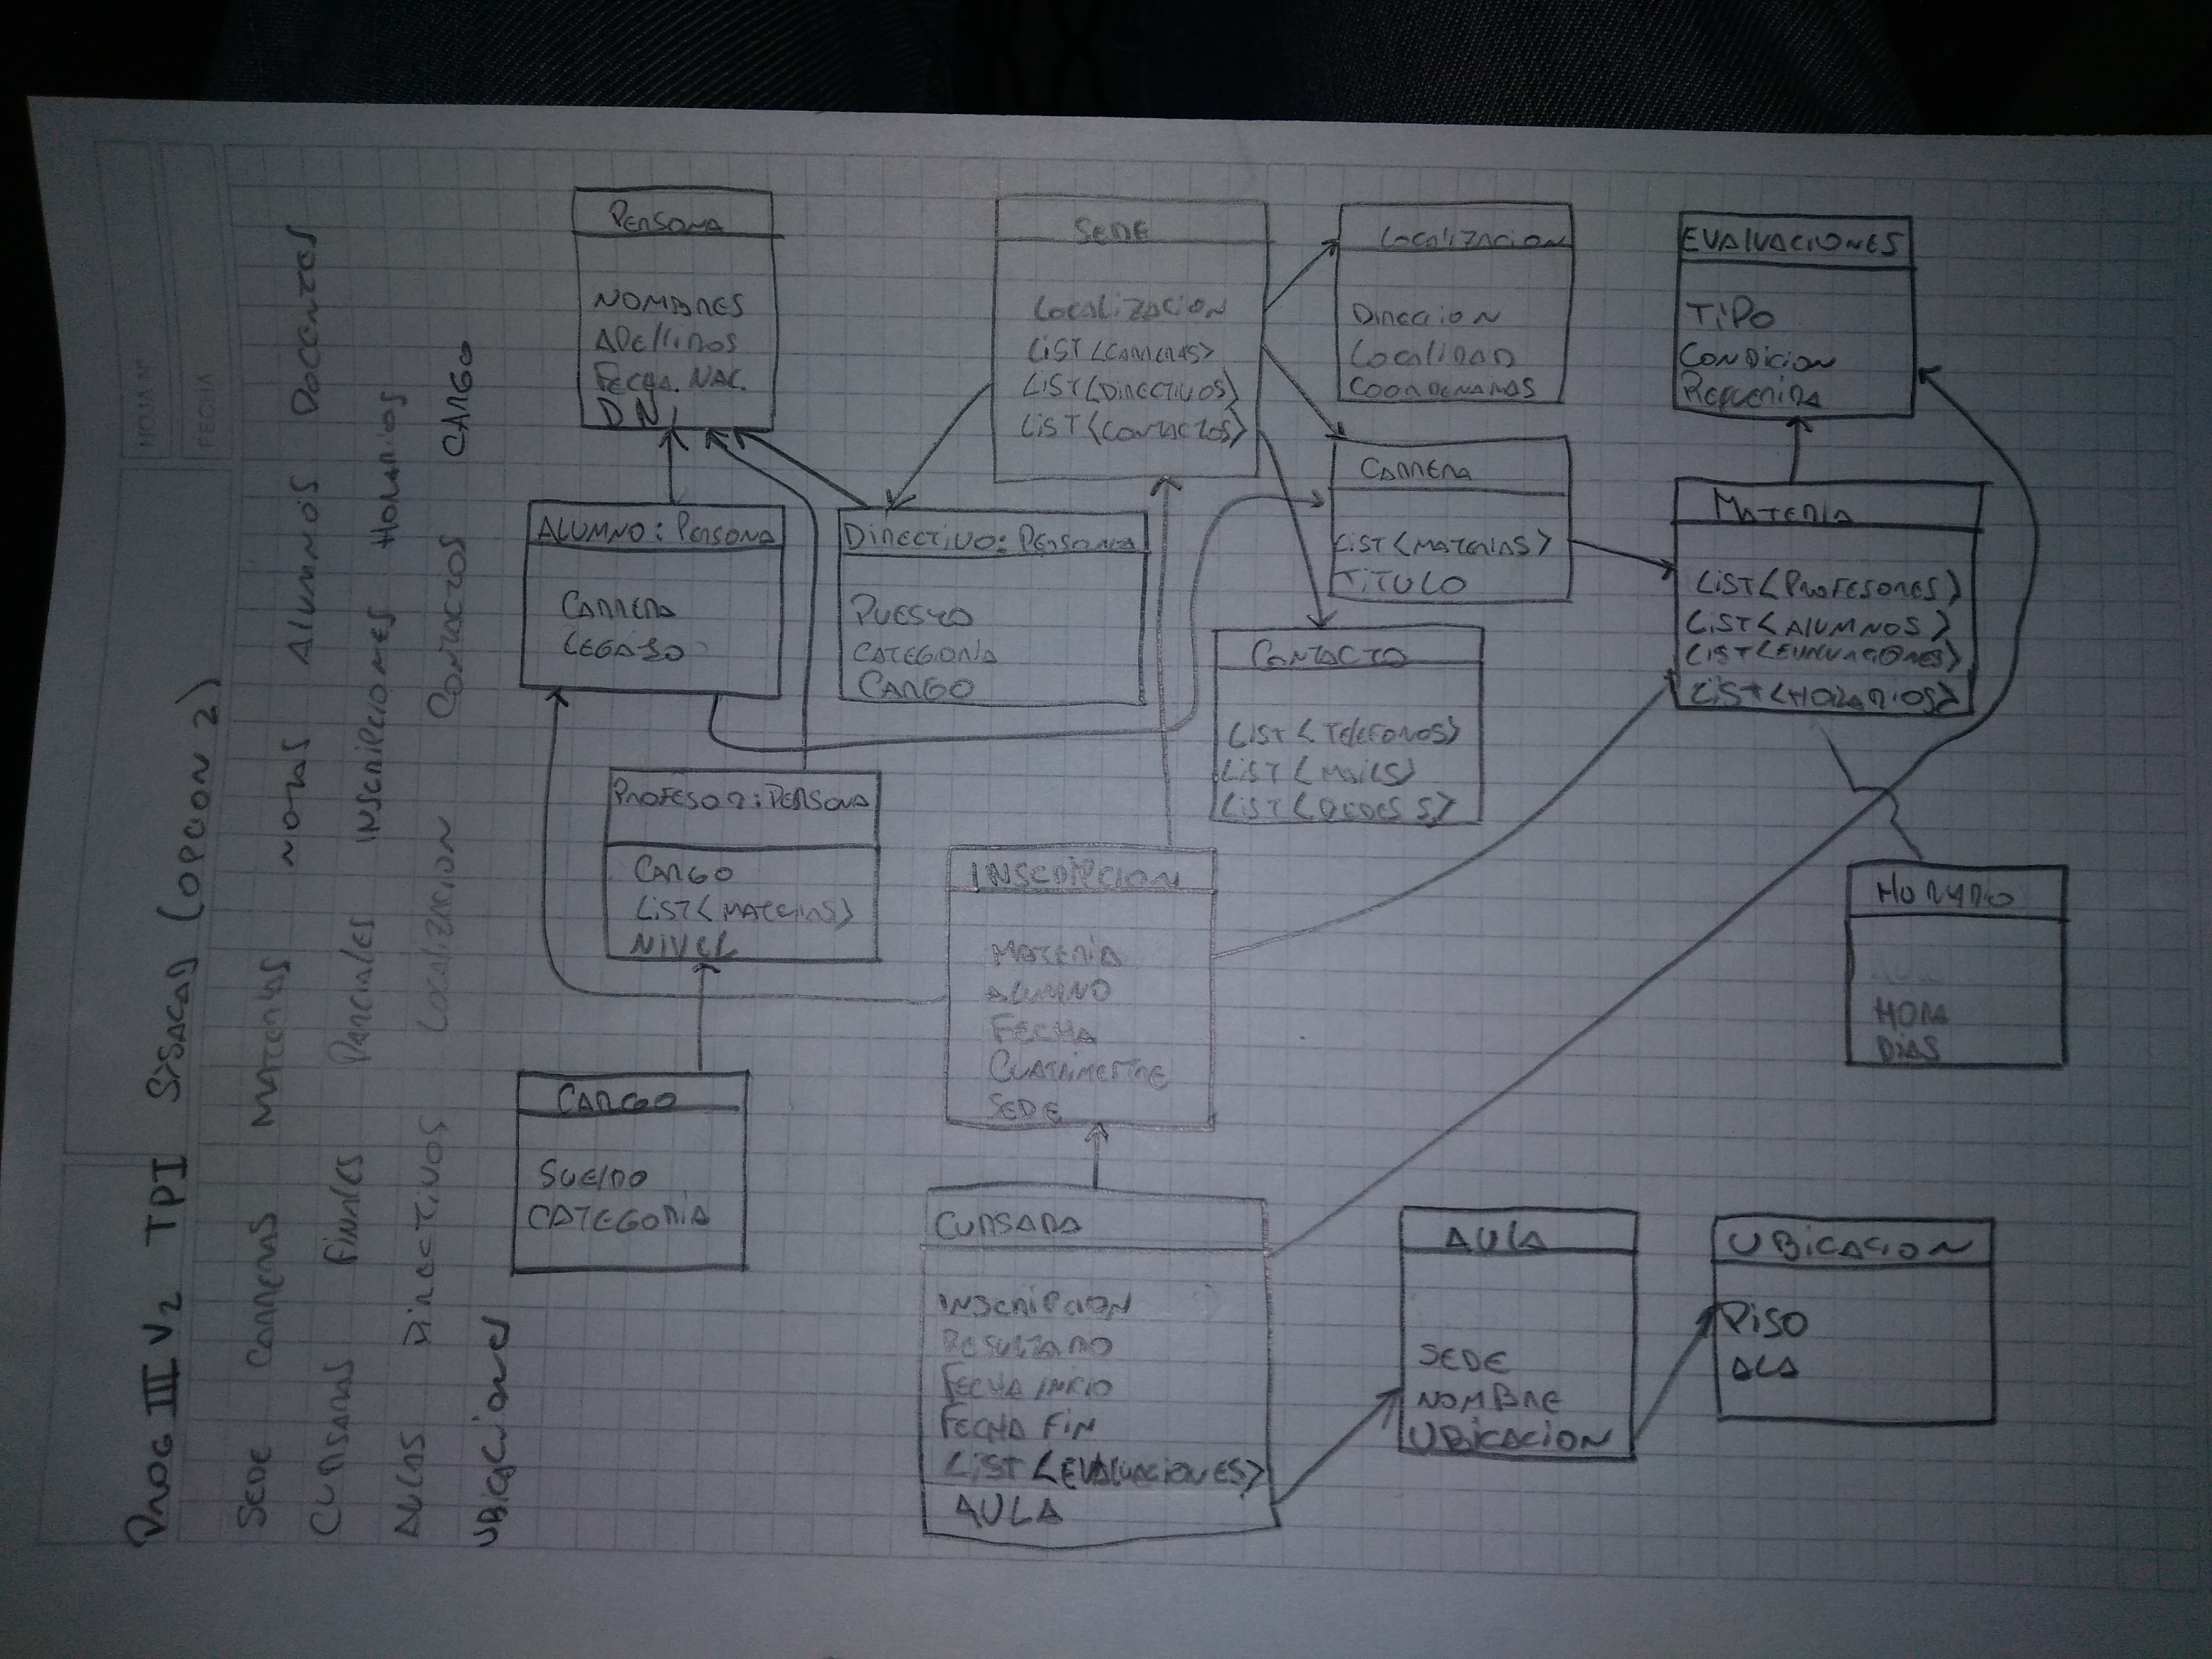 HOJA Nº
FECHA
PROG III V2 TPI SYSACAD (OPCION 2)
SEDE CARRERAS MATERIAS NOTAS ALUMNOS DOCENTES
CURSADAS FINALES PARCIALES INSCRIPCIONES HORARIOS
AULAS DIRECTIVOS LOCALIZACION CONTACTOS CARGO
UBICACIONES
PERSONA
NOMBRES
APELLIDOS
FECHA. NAC.
DNI
SEDE
LOCALIZACION
LIST <CARRERAS>
LIST <DIRECTIVOS>
LIST <CONTACTOS>
LOCALIZACION
DIRECCION
LOCALIDAD
COORDENADAS
EVALUACIONES
TIPO
CONDICION
REQUERIDA
ALUMNO: PERSONA
CARRERA
LEGAJO
DIRECTIVO: PERSONA
PUESTO
CATEGORIA
CARGO
CARRERA
LIST <MATERIAS>
TITULO
MATERIA
LIST <PROFESORES>
LIST <ALUMNOS>
LIST <EVALUACIONES>
LIST <HORARIOS>
CONTACTO
LIST <TELEFONOS>
LIST <MAILS>
LIST <REDES S>
PROFESOR: PERSONA
CARGO
LIST <MATERIAS>
NIVEL
INSCRIPCION
MATERIA
ALUMNO
FECHA
CUATRIMESTRE
SEDE
HORARIO
HORA
DIAS
CARGO
SUELDO
CATEGORIA
CURSADA
INSCRIPCION
RESULTADO
FECHA INICIO
FECHA FIN
LIST <EVALUACIONES>
AULA
AULA
SEDE
NOMBRE
UBICACION
UBICACION
PISO
ALA